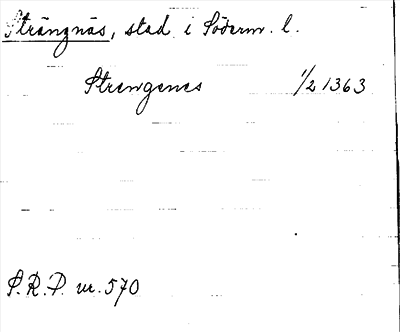 Strängnäs, stad i Söderm. l.
Strengenes 1/2 1363
S.R.P. nr. 570